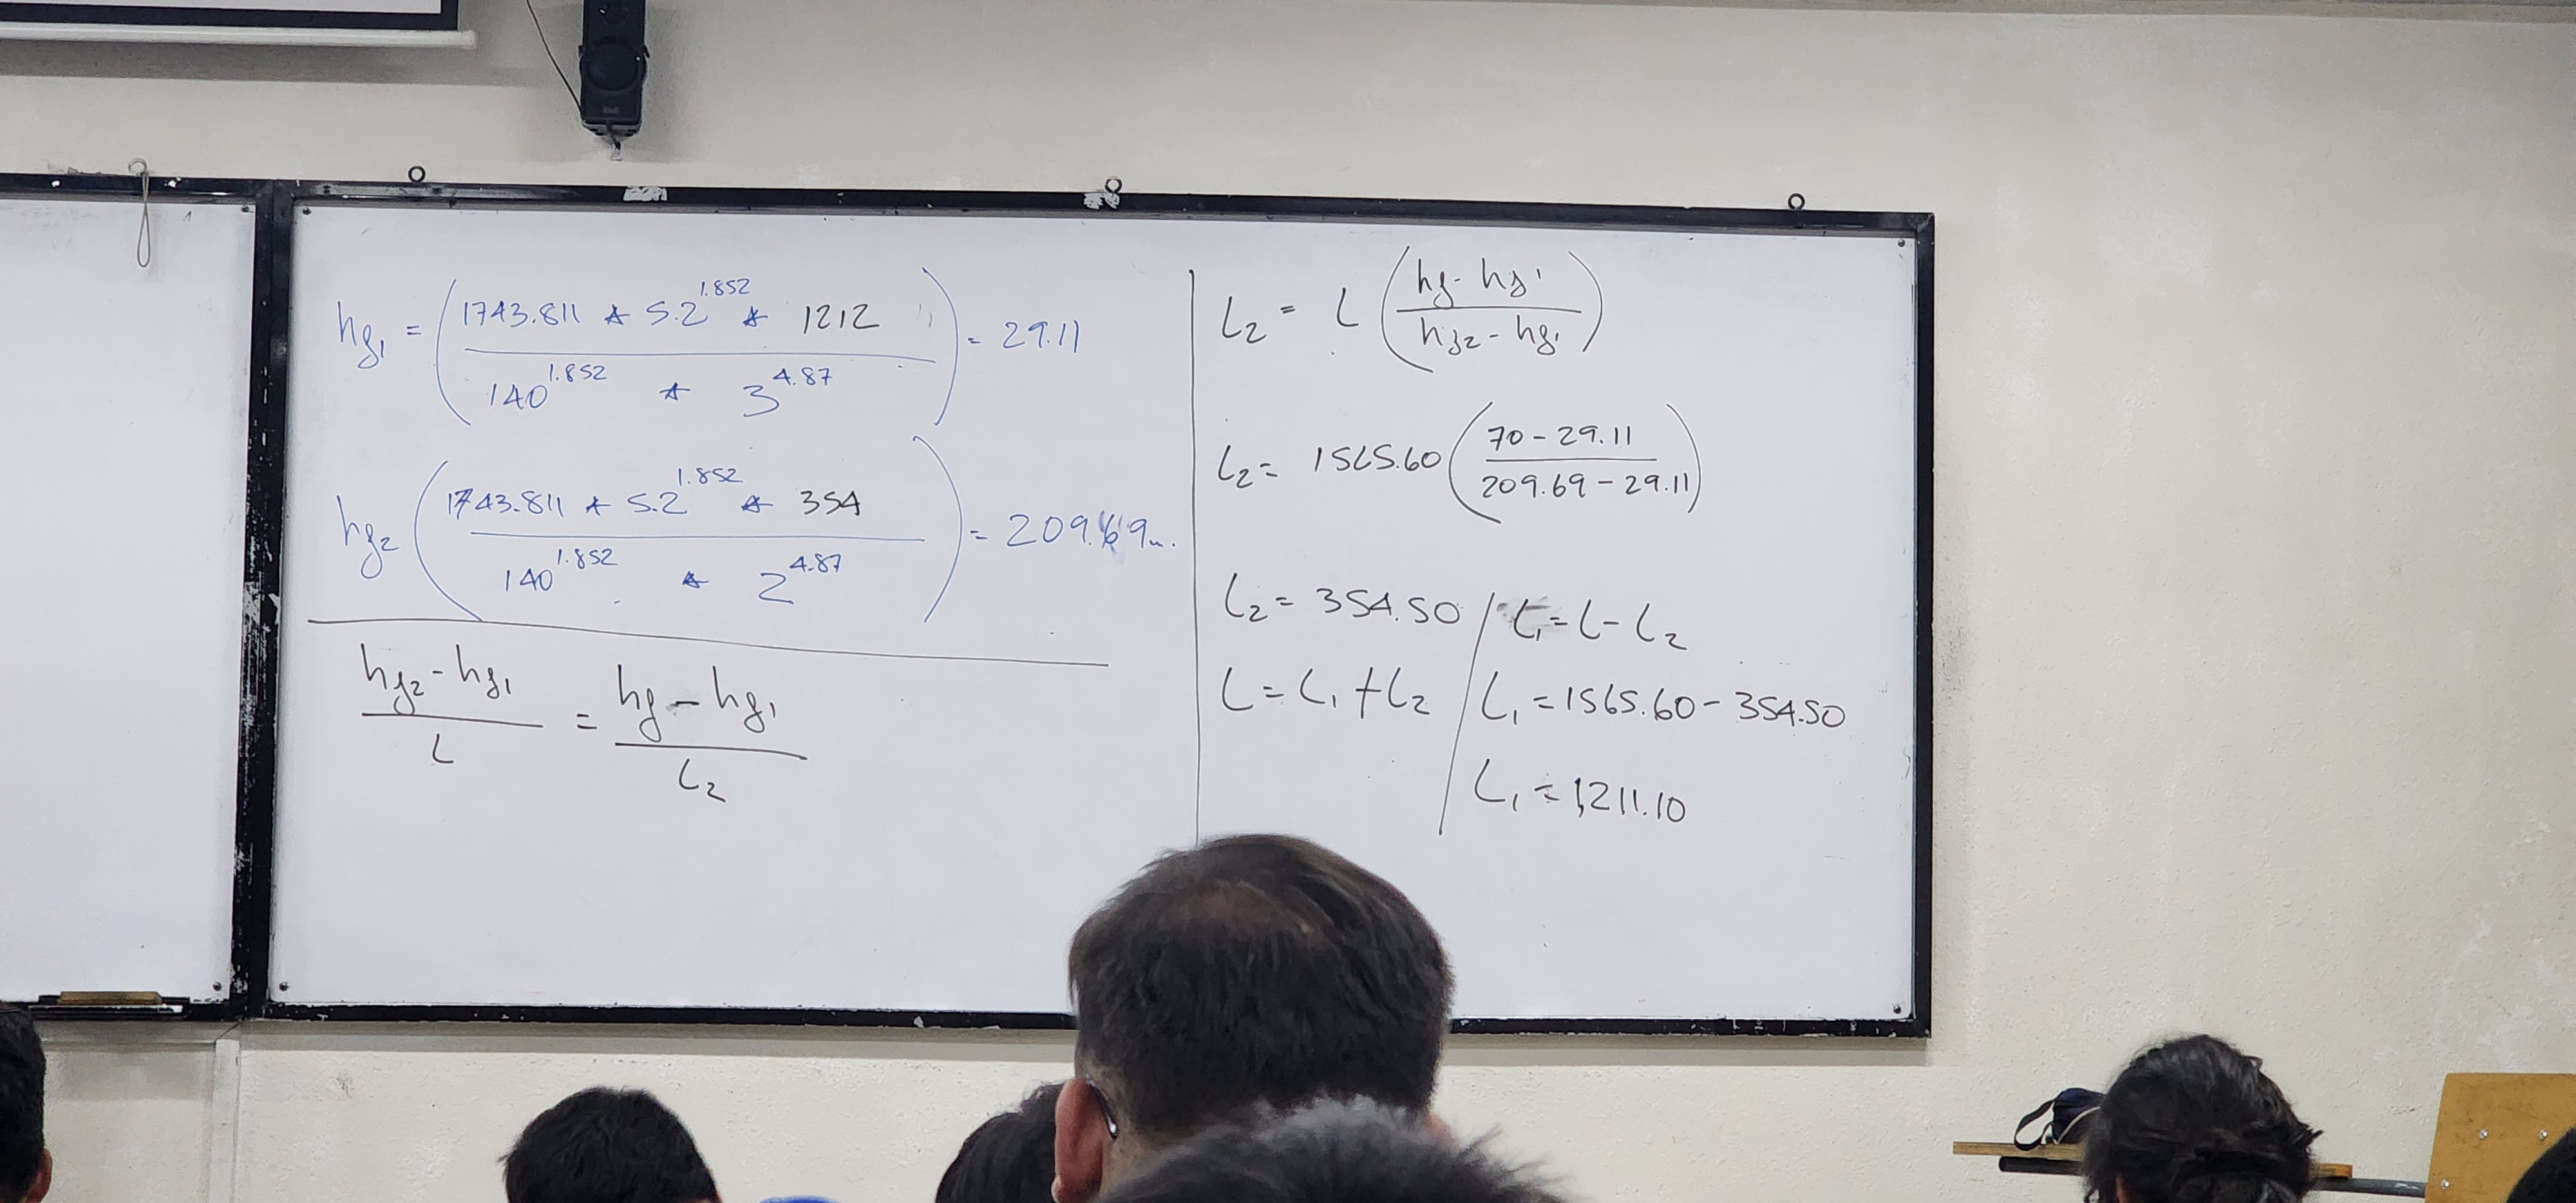 hf₁ = (1743.811 * 5.2^1.852 * 1212 / 140^1.852 * 3^4.87) = 29.11
hf₂ (1743.811 * 5.2^1.852 * 354 / 140^1.852 * 2^4.87) = 209.69m.
hf₂ - hf₁ / L = hf - hf₁ / L₂
L₂ = L (hf - hf₁ / hf₂ - hf₁)
L₂ = 1565.60 (70 - 29.11 / 209.69 - 29.11)
L₂ = 354.50
L = L₁ + L₂
L₁ = L - L₂
L₁ = 1565.60 - 354.50
L₁ = 1,211.10